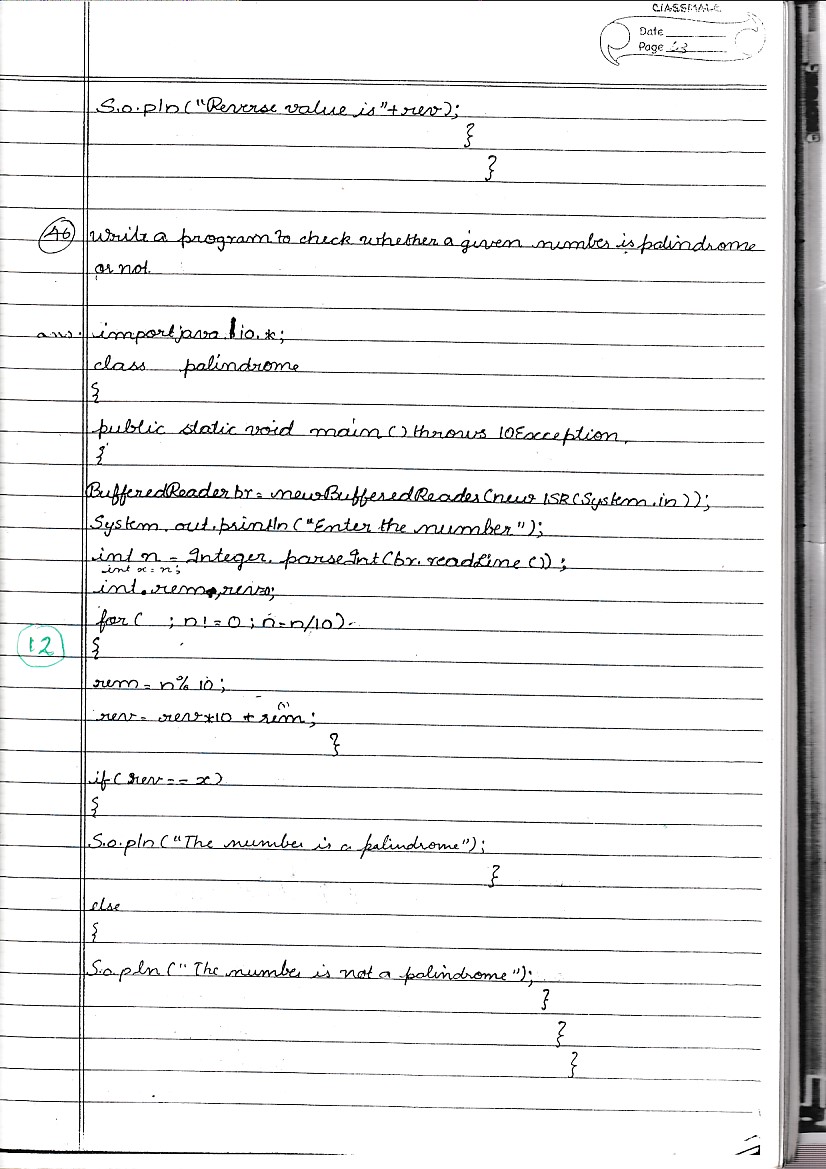 CLASSMATE
Date
Page
S.o.pln("Reverse value is"+rev);
}
}
46 Write a program to check whether a given number is palindrome
or not.
ans. import java.io.*;
class palindrome
{
public static void main () throws IOException
{
BufferedReader br = new BufferedReader(new ISR(System.in));
System.out.println("Enter the number");
int n = Integer.parseInt(br.readLine());
int x = n;
int rem, rev=0;
for( ; n!=0 ; n=n/10)
12
{
rem = n% 10;
rev= rev*10 + rem;
}
if(rev== x)
{
S.o.pln("The number is a palindrome");
}
else
{
S.o.pln("The number is not a palindrome");
}
}
}